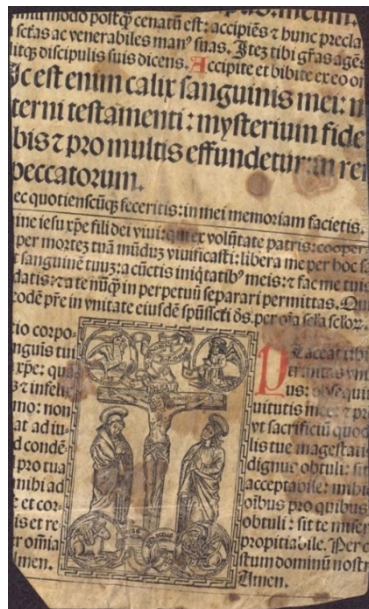 simili modo postq̃ cenatũ est: accipiẽs ⁊ hunc precla
sctãs ac venerabiles manꝰ suas. Itẽz tibi grãs agẽs
ditqz discipulis suis dicens. Accipite et bibite ex eo oi
Hic est enim calix sanguinis mei: n
terni testamenti: mysterium fide
bis ⁊ pro multis effundetur: in rei
peccatorum.
ec quotienscũqz feceritis: in mei memoriam facietis.
ine iesu xp̃e fili dei viui: qui ex volũtate patris: cooperã
per mortez tuã mũduz viuificasti: libera me per hoc s
sanguinẽ tuuz: a cũctis iniq̃tatibꝰ meis: ⁊ fac me tuis
datis: ⁊ a te nũq̃ in perpetuũ separari permittas. Qui
eodẽ p̃re in vnitate eiusdẽ sp̃ũscti d̃s. per oĩa sc̃la sc̃lor
tio corpo-
nguis tui
xp̃e: qu
s ⁊ infeli
mo: non
at ad iu-
d condẽ-
pro tua
mihi ad
e et cor-
is et re
r om̃ia
Amen.
Placeat tibi
trinitas
us: obsequi
uitutis mee: ⁊ pr
vt sacrificiũ quod
lis tue magestati
dignus obtuli: sit
acceptabile: mihi
oĩbus pro quibus
obtuli: sit te miser
propitiabile. Per c
stum dominũ nostr
Amen.